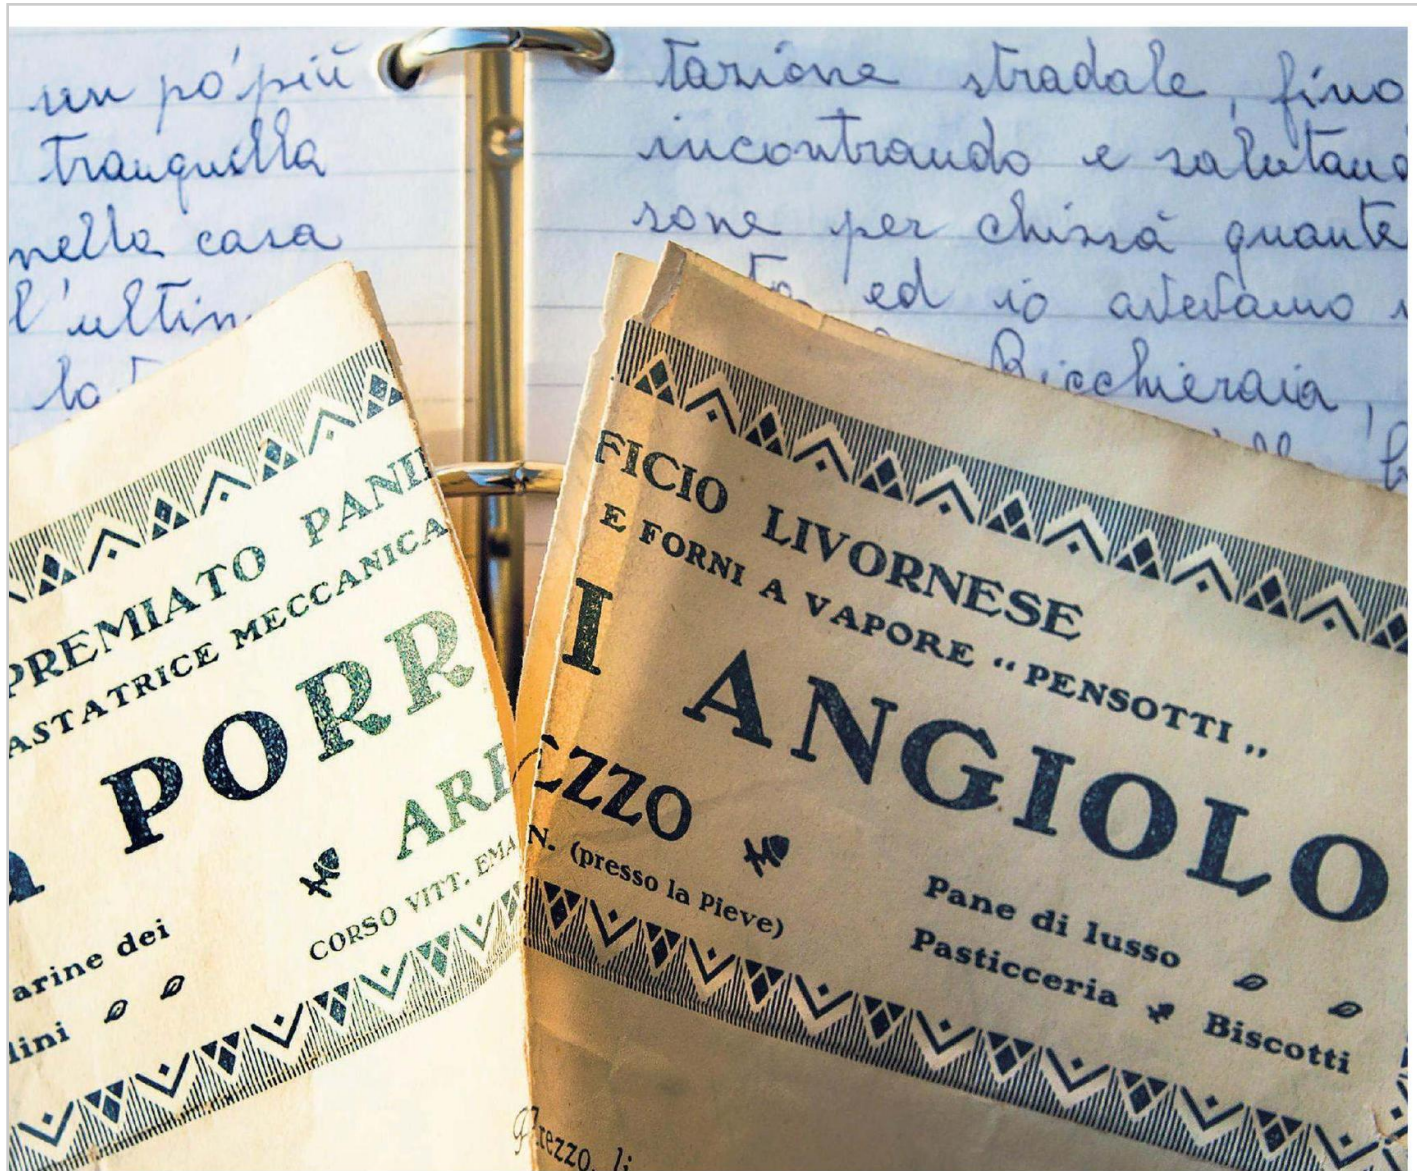 un po' più
tranquilla
nella casa
l'ultim
la
tazione stradale, fino
incontrando e salutand
sone per chissà quante
ed io avevamo
Bicchieraia,
PREMIATO PANI
ASTATRICE MECCANICA
PORR
ARE
CORSO VITT. EMA
arine dei
lini
FICIO LIVORNESE
E FORNI A VAPORE "PENSOTTI"
I ANGIOLO
EZZO
N. (presso la Pieve)
Pane di lusso
Pasticceria Biscotti
Arezzo, li